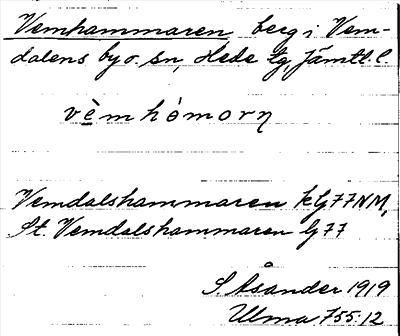 Vemhammaren, berg i Vem-
dalens by o. sn, Hede tg, Jämtl. l.
vèmhámorη
Vemdalshammaren kG77NM,
St. Vemdalshammaren G77
S Åsander 1919
Ulma 755:12